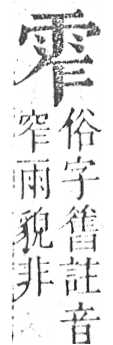 俗字舊註音
窄雨貌非